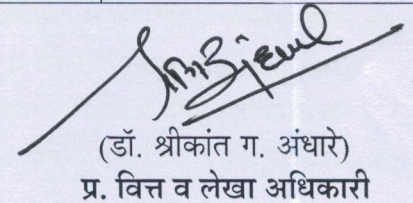 (डॉ. श्रीकांत ग. अंधारे)
प्र. वित्त व लेखा अधिकारी